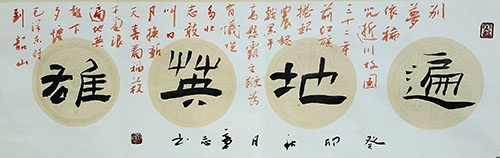 别
夢
依稀
咒逝川故園
三十二年
前紅旗
捲起
農奴
戟黑手
高懸霸主鞭為
有犧牲
多壯
志敢
叫日
月換新
天喜看稻菽
千重浪
遍地英
雄下
夕煙
毛泽东詩
到韶山
遍地英雄
癸卯秋月志书